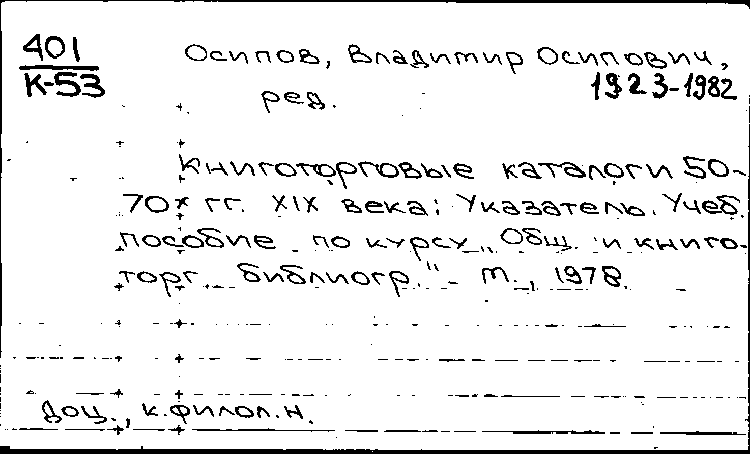 401
К-53
Осипов, Владимир Осипович,
1923-1982
ред.
Книготорговые каталоги 50-
70х гг. XIX века: Указатель. Учеб.
пособие по курсу „Общ. и книго-
торг. библиогр." - М., 1978.
Доц., к.филол.н.